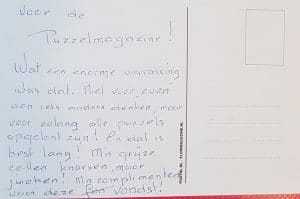 voor de
Puzzelmagazine!
Wat een enorme verrassing
was dat. Niet voor even
aan iets anders denken, maar
voor zolang alle puzzels
opgelost zijn! En dat is
best lang! M'n grijze
cellen knarsen, maar
juichen! M'n complimenten
voor deze vondst.